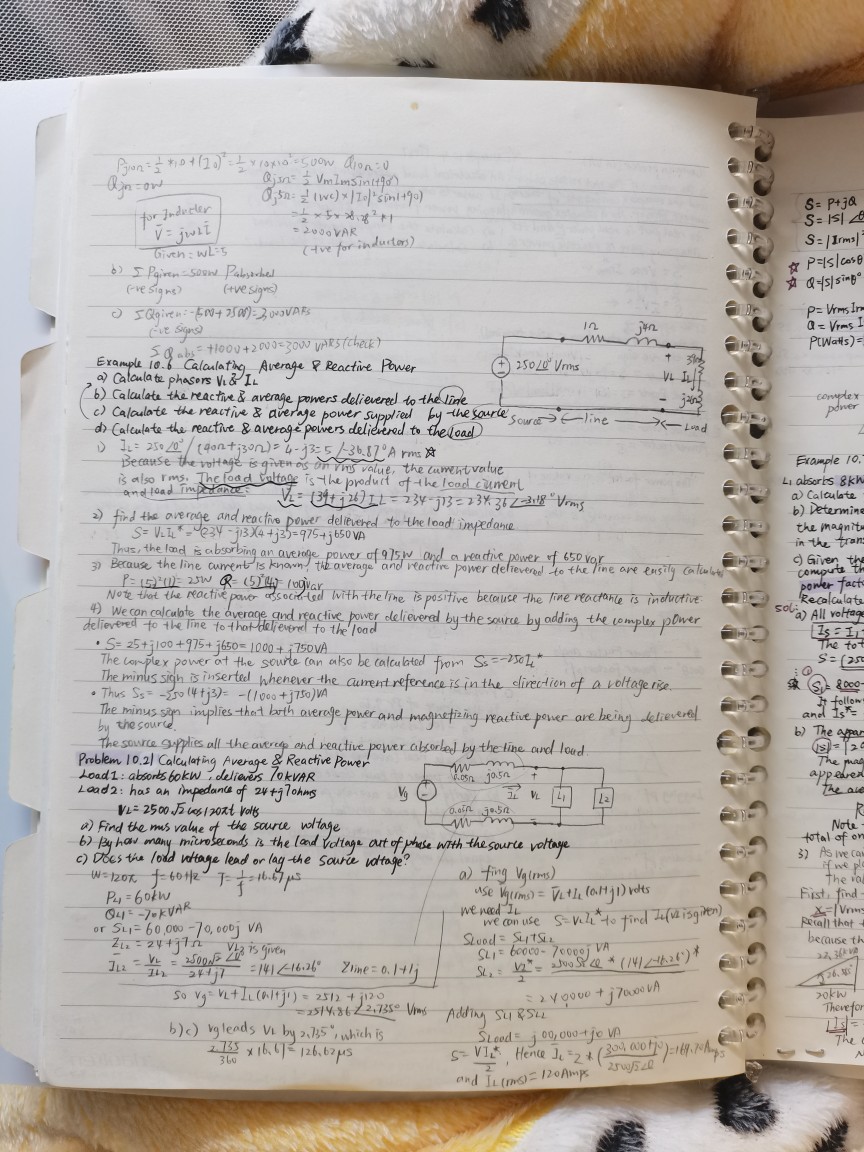 = 1/2 × 10 × 10² = 500W Q10Ω = 0
for Inductor
V̄ = jωLĪ
Given = ωL = 5
= 2000 VAR
(+ve for inductors)
b) Σ Pgiven = 500W Pabsorbed
(-ve signs) (+ve signs)
(-ve signs)
Σ Qabs = +1000 + 2000 = 3000 VARS (check)
Example 10.6 Calculating Average & Reactive Power
a) Calculate phasors VL & IL
b) Calculate the reactive & average powers delievered to the line
c) Calculate the reactive & average power supplied by the source
d) Calculate the reactive & average powers delievered to the load
1Ω j4Ω
250∠0° Vrms
+
VL IL
-
Source line Load
1) IL = 250∠0° / (40Ω + j30Ω) = 4 - j3 = 5∠-36.87° A rms
Because the voltage is given as an rms value, the current value
is also rms. The load voltage is the product of the load current
and load impedance:
VL = (39 + j26) IL = 234 - j13 = 234.36∠-3.18° Vrms
2) find the average and reactive power delievered to the load impedance
S = VLIL* = (234 - j13)(4 + j3) = 975 + j650 VA
Thus, the load is absorbing an average power of 975W and a reactive power of 650 var
3) Because the line current is known, the average and reactive power delievered to the line are easily calculated
P = (5)²(1) = 25W Q = (5)²(4) = 100 var
Note that the reactive power associated with the line is positive because the line reactance is inductive
4) We can calculate the average and reactive power delievered by the source by adding the complex power
delievered to the line to that delievered to the load
• S = 25 + j100 + 975 + j650 = 1000 + j750 VA
The complex power at the source can also be calculated from Ss = -250IL*
The minus sign is inserted whenever the current reference is in the direction of a voltage rise.
• Thus Ss = -250(4 + j3) = -(1000 + j750) VA
The minus sign implies that both average power and magnetizing reactive power are being delievered
by the source.
The source supplies all the average and reactive power absorbed by the line and load
Problem 10.21 Calculating Average & Reactive Power
Load 1: absorbs 60kW, delievers 70kVAR
Load 2: has an impedance of 24 + j7 ohms
VL = 2500√2 cos 120πt volts
a) Find the rms value of the source voltage
b) By how many microseconds is the load voltage out of phase with the source voltage
c) Does the load voltage lead or lag the source voltage?
0.05Ω j0.5Ω
Vg + IL VL L1 L2
0.05Ω j0.5Ω
W = 120π f = 60Hz T = 1/f = 16.67μs
PL1 = 60kW
QL1 = -70kVAR
or SL1 = 60,000 - 70,000j VA
ZL2 = 24 + j7Ω VL is given
ĪL2 = VL/ZL2 = 2500√2∠0°/24+j7 = 141∠-16.26° Zline = 0.1 + 1j
So Vg = VL + IL(0.1 + j1) = 2512 + j120
= 2514.86∠2.735° Vrms
b)c) Vg leads VL by 2.735°, which is
2.735/360 × 16.67 = 126.62μs
a) fing Vg(rms)
use Vg(rms) = V̄L + IL(0.1 + j1) volts
we need IL
we can use S = VLIL* to find IL (VL is given)
SLoad = SL1 + SL2
SL1 = 60000 - 70000j VA
= 240000 + j70000 VA
Adding SL1 & SL2
and IL(rms) = 120Amps
S = P + jQ
P = |S|cosθ
Q = |S|sinθ
complex
power
Example 10.
L1 absorbs 8kW
a) Calculate
b) Determine
the magnit
in the tran
c) Given the
compute th
power facto
Recalculate
Sol:
a) All voltage
The tot
It follow
and Is* =
b) The appar
The mag
Note
total of on
3)
if we pl
First, find
Recall that
because th
20kW
Therefor